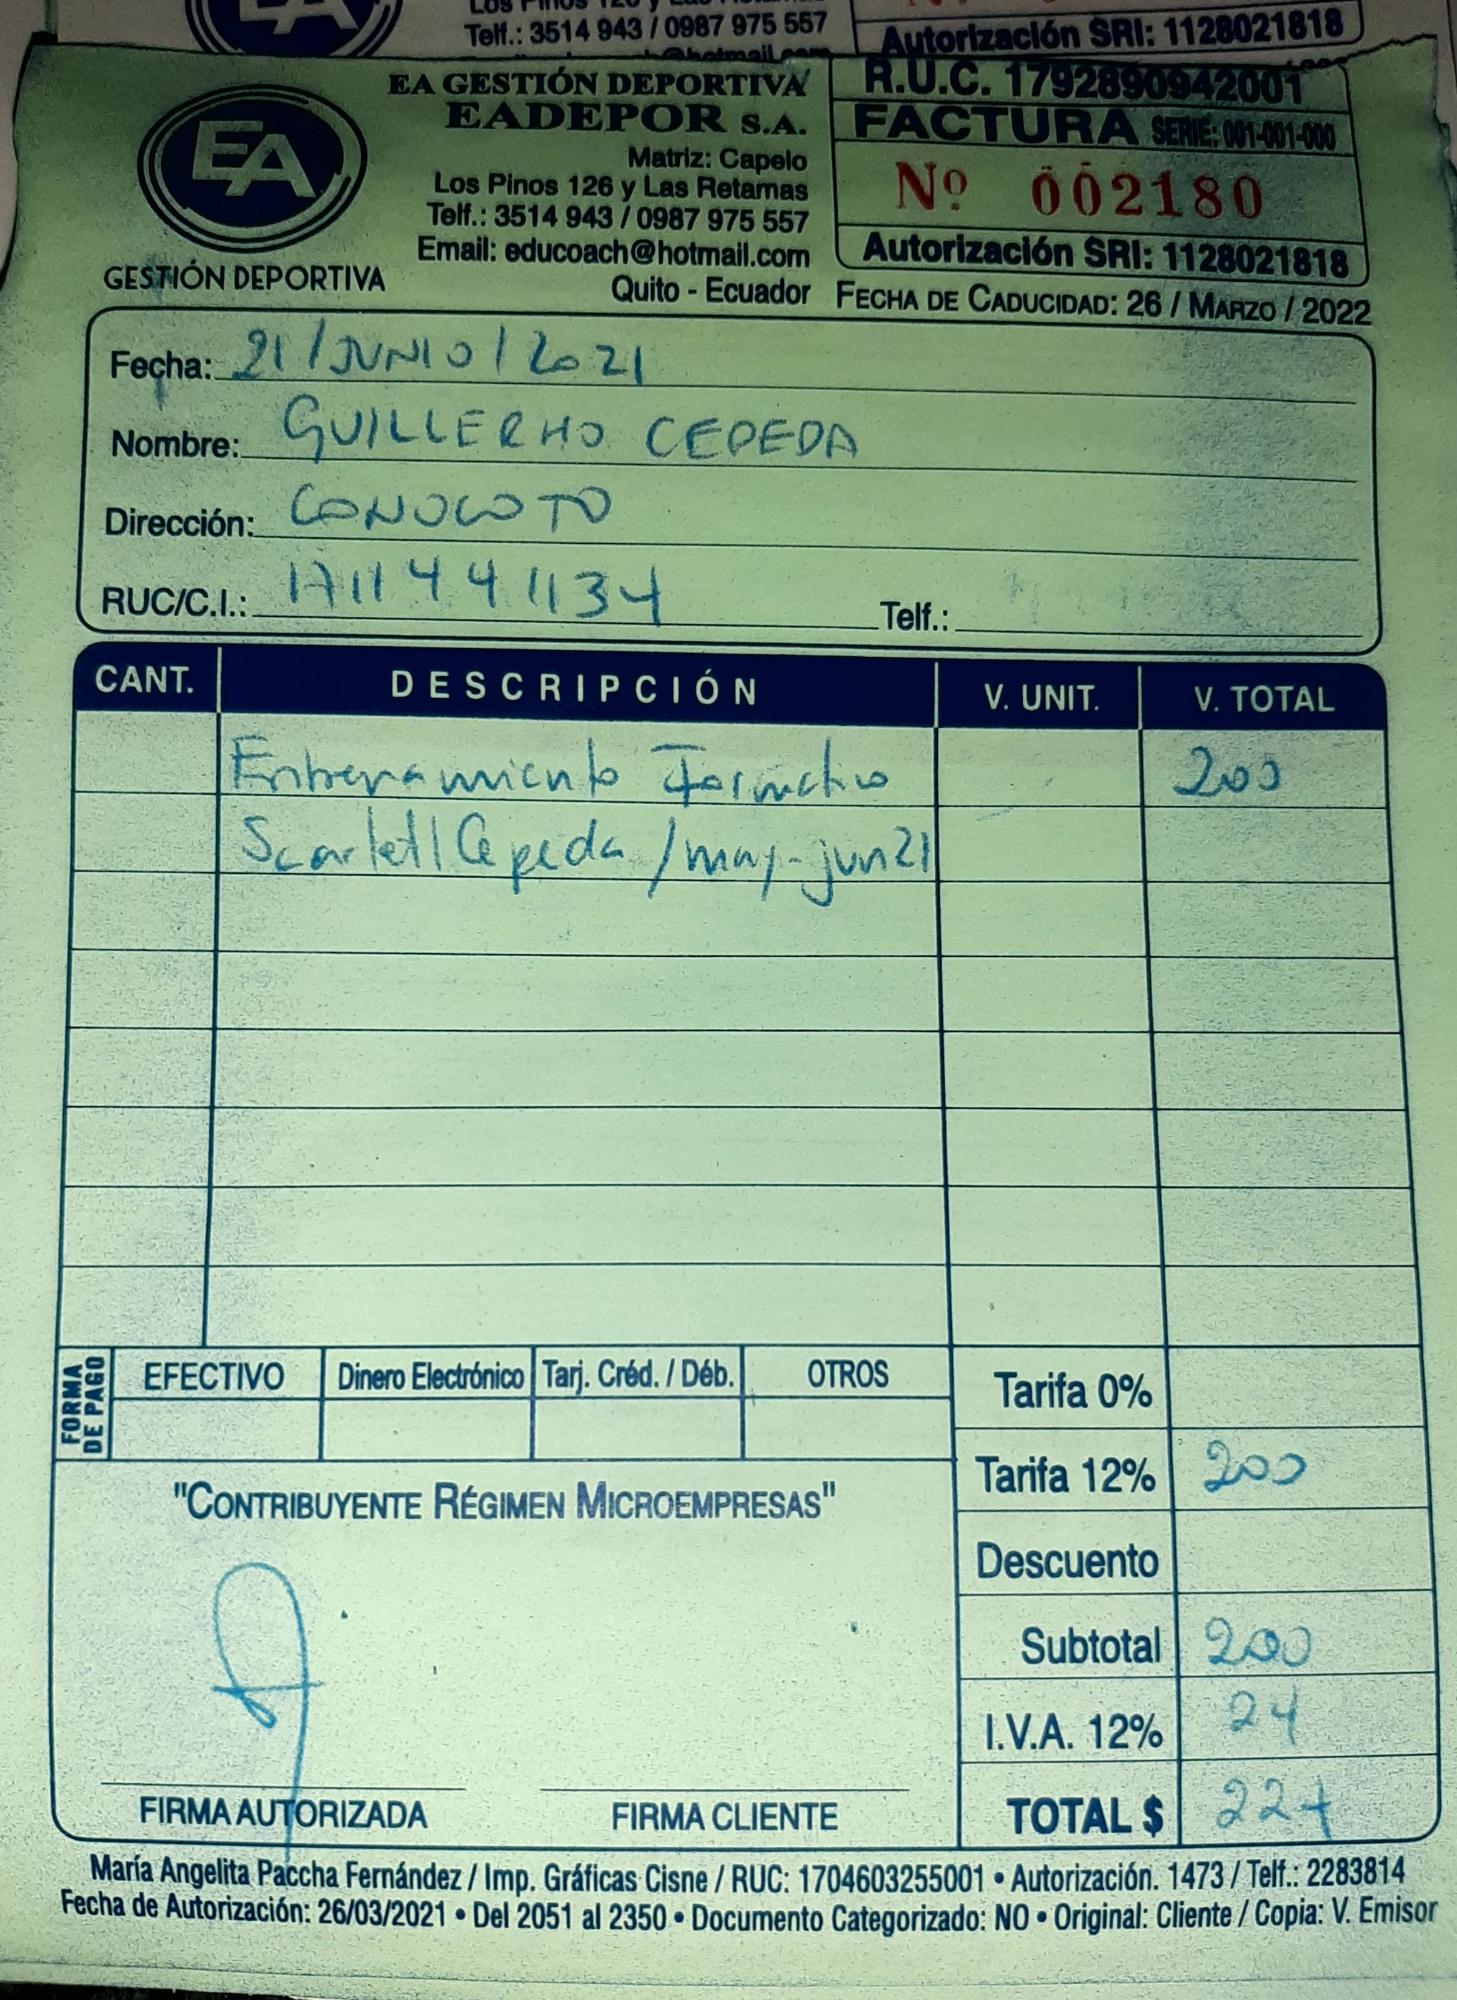 Los Pinos 126 y Las Retamas
Telf.: 3514 943 / 0987 975 557
Autorización SRI: 1128021818
EA
GESTIÓN DEPORTIVA
EA GESTIÓN DEPORTIVA
EADEPOR S.A.
Matriz: Capelo
Los Pinos 126 y Las Retamas
Telf.: 3514 943 / 0987 975 557
Email: educoach@hotmail.com
Quito - Ecuador
R.U.C. 1792890942001
FACTURA SERIE: 001-001-000
Nº 002180
Autorización SRI: 1128021818
FECHA DE CADUCIDAD: 26 / MARZO / 2022
Fecha: 21/JUNIO/2021
Nombre: GUILLERMO CEPEDA
Dirección: CONOCOTO
RUC/C.I.: 1711441134 Telf.:
CANT. DESCRIPCIÓN V. UNIT. V. TOTAL
Entrenamiento Formativo 200
Scarlett Cepeda /may-jun21
FORMA DE PAGO
EFECTIVO Dinero Electrónico Tarj. Créd. / Déb. OTROS
Tarifa 0%
Tarifa 12% 200
Descuento
Subtotal 200
I.V.A. 12% 24
TOTAL $ 224
"CONTRIBUYENTE RÉGIMEN MICROEMPRESAS"
FIRMA AUTORIZADA FIRMA CLIENTE
María Angelita Paccha Fernández / Imp. Gráficas Cisne / RUC: 1704603255001 • Autorización. 1473 / Telf.: 2283814
Fecha de Autorización: 26/03/2021 • Del 2051 al 2350 • Documento Categorizado: NO • Original: Cliente / Copia: V. Emisor